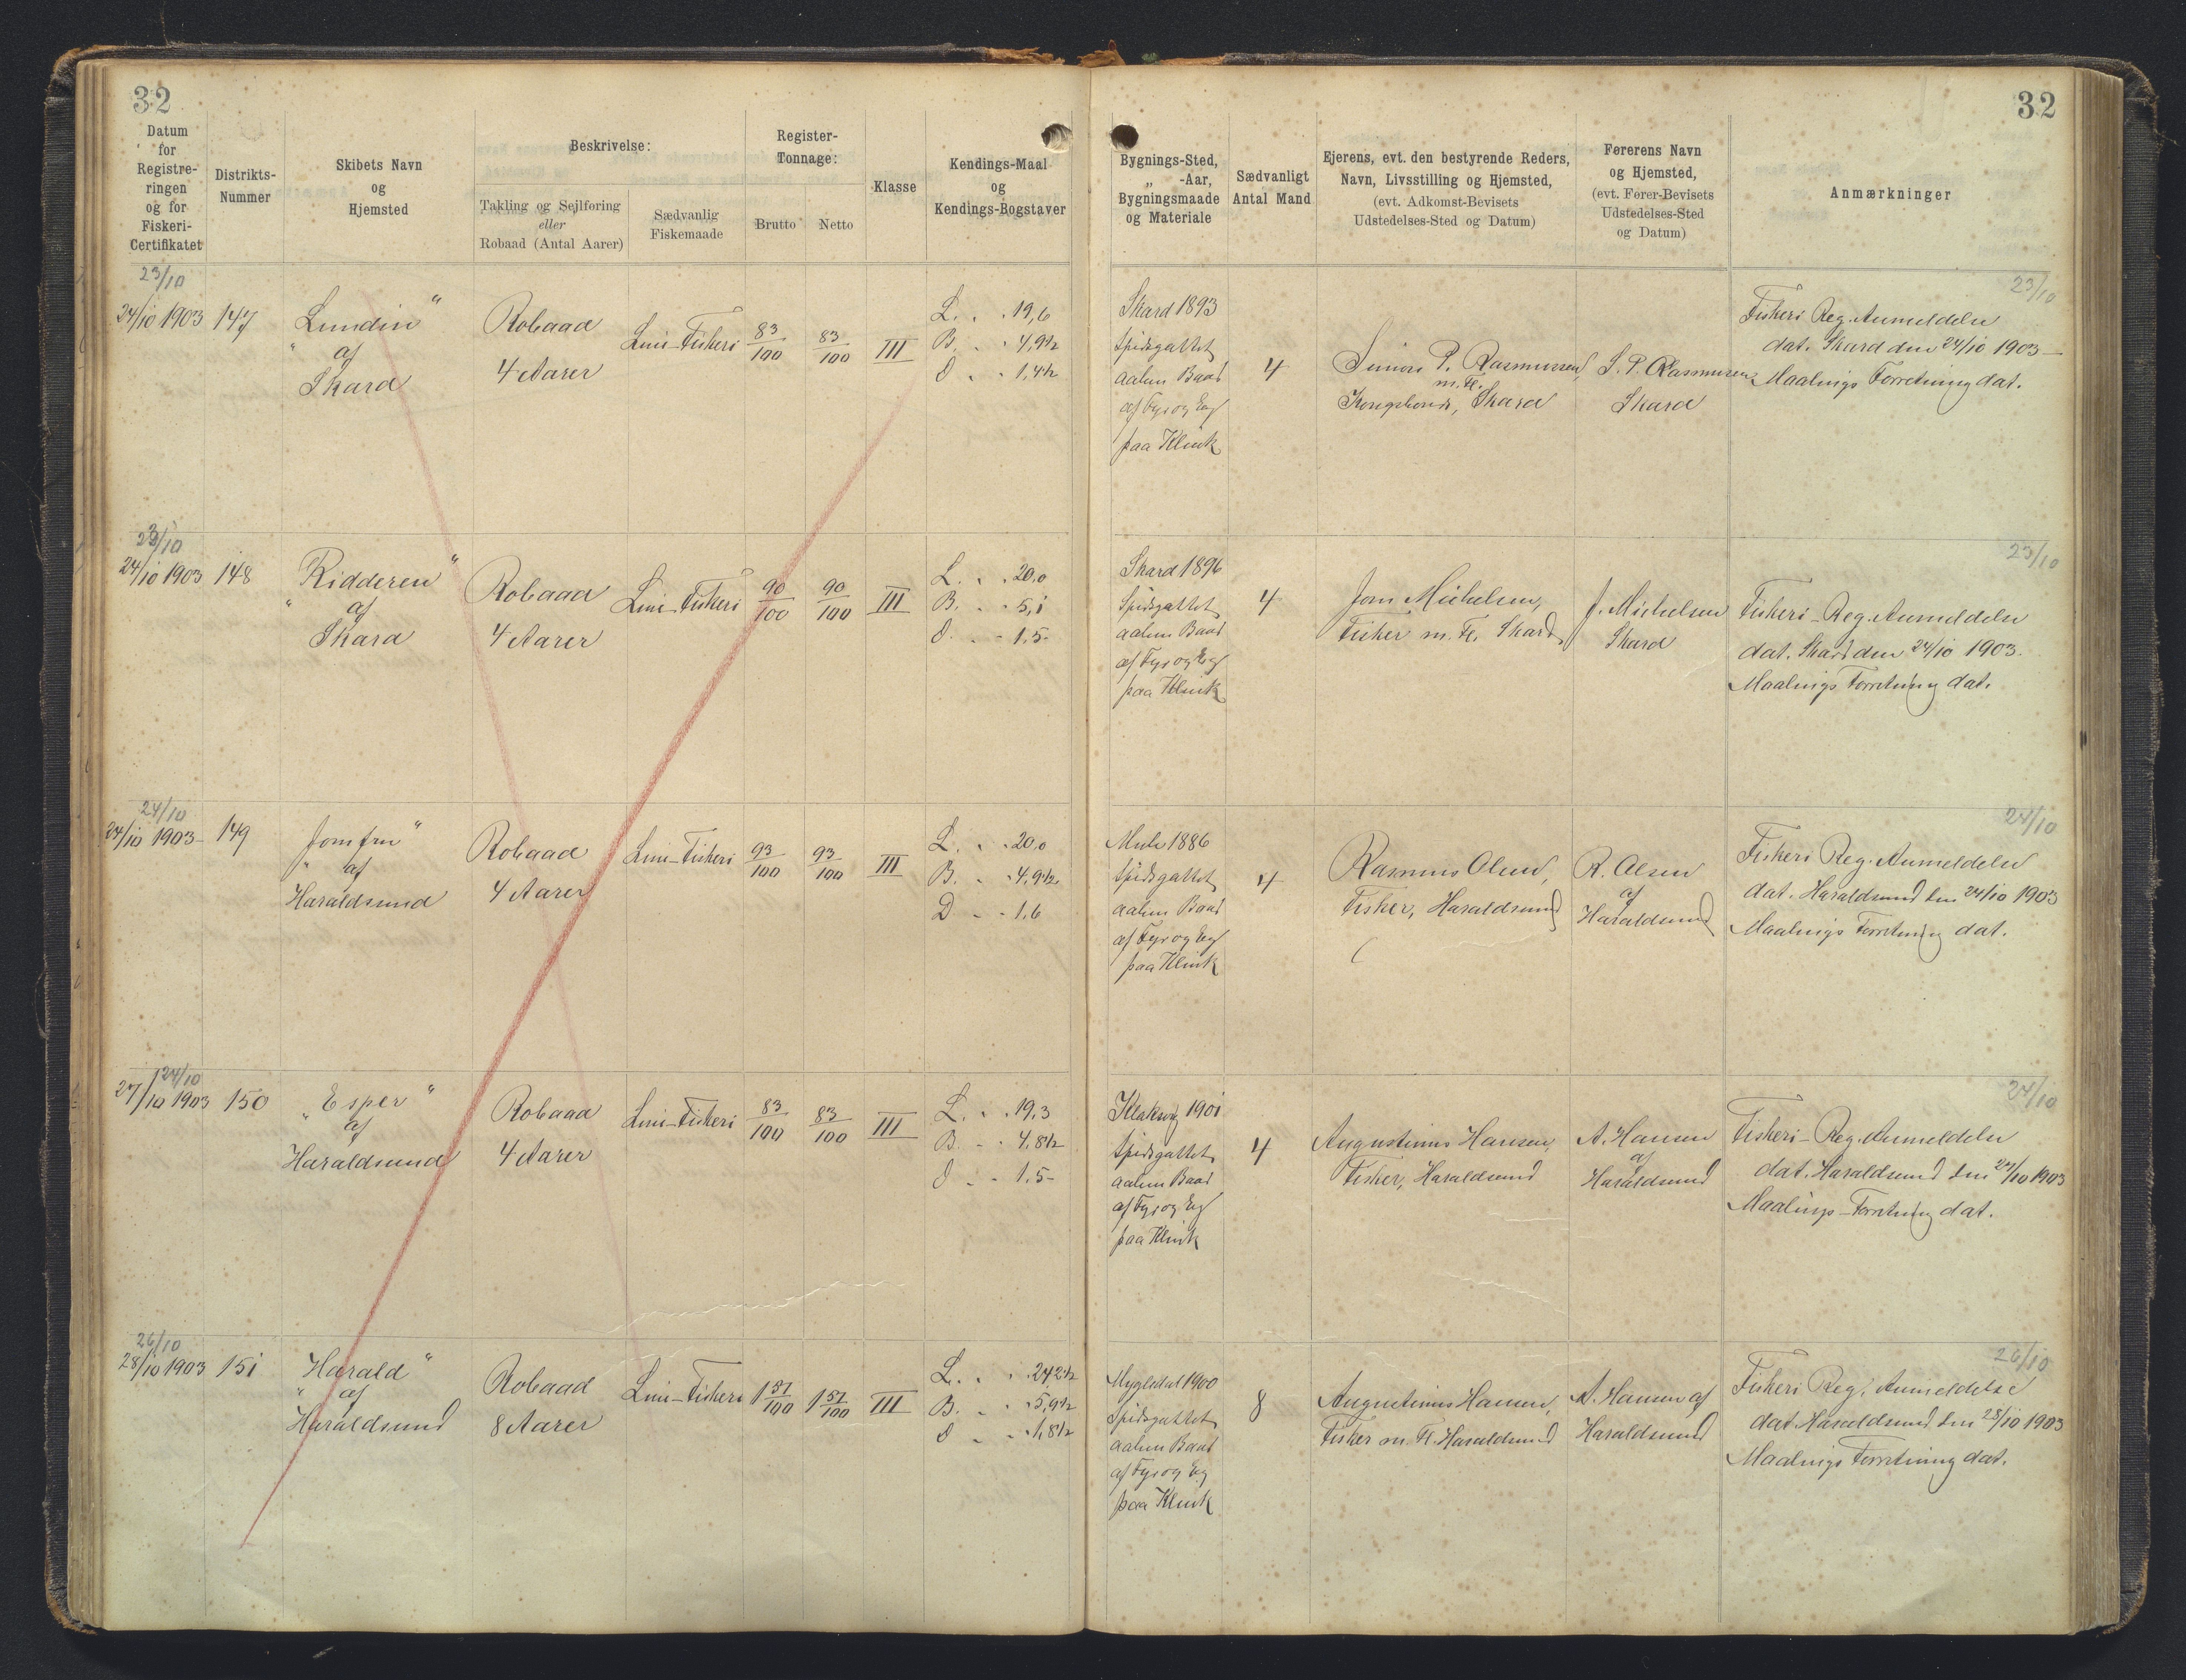 32
32
Datum
for
Registre-
ringen
og for
Fiskeri-
Certifikatet
Distrikts-
Nummer
Skibets Navn
og
Hjemsted
Beskrivelse:
Takling og Sejlføring
eller
Robaad (Antal Aarer)
Sædvanlig
Fiskemaade
Register-
Tonnage:
Brutto
Netto
Klasse
Kendings-Maal
og
Kendings-Bogstaver
Bygnings-Sted,
„ -Aar,
Bygningsmaade
og Materiale
Sædvanligt
Antal Mand
Ejerens, evt. den bestyrende Reders,
Navn, Livsstilling og Hjemsted,
(evt. Adkomst-Bevisets
Udstedelses-Sted og Datum)
Førerens Navn
og Hjemsted,
(evt. Fører-Bevisets
Udstedelses-Sted
og Datum)
Anmærkninger
23/10
24/10 1903
147
"Lundin"
af
Skard
Robaad
4 Aarer
Line-Fiskeri
83/100
83/100
III
L. . . 19,6
B. . . 4,9½
D . . 1,4½
Skard 1893
Spidsgattet
aaben Baad
af Fyr og Eg
paa Klink
4
Simon P. Rasmussen,
m. Fl.
Kongsbonde, Skard
S. P. Rasmussen
Skard
23/10
Fiskeri Reg. Anmeldelse
dat. Skard den 24/10 1903
Maalings Forretning dat.
23/10
24/10 1903
148
"Ridderen"
af
Skard
Robaad
4 Aarer
Line-Fiskeri
90/100
90/100
III
L. . . 20,0
B. . . 5,1
D. . - 1,5-
Skard 1896
Spidsgattet
aaben Baad
af Fyr og Eg
paa Klink
4
Joen Michelsen,
Fisker m. Fl. Skard
J. Michelsen
Skard
23/10
Fiskeri-Reg. Anmeldelse
dat. Skard den 24/10 1903.
Maalings Forretning dat.
24/10
24/10 1903-
149
"Jomfru"
af
Haraldsund
Robaad
4 Aarer
Line-Fiskeri
93/100
93/100
III
L. . . 20,0
B. . . 4,9½
D - - 1,6
Mule 1886
Spidsgattet
aaben Baad
af Fyr og Eg
paa Klink
4
Rasmus Olsen,
Fisker, Haraldsund
R. Olsen
af
Haraldsund
24/10
Fiskeri Reg. Anmeldelse
dat. Haraldsund den 24/10 1903
Maalings Forretning dat.
24/10
27/10 1903
150
"Esper"
af
Haraldsund
Robaad
4 Aarer
Line-Fiskeri
83/100
83/100
III
L. . . 19,3
B. - . 4,8½
D . - 1,5-
Klaksvig 1901
Spidsgattet
aaben Baad
af Fyr og Eg
paa Klink
4
Augustinus Hansen,
Fisker, Haraldsund
A. Hansen
af
Haraldsund
24/10
Fiskeri-Reg. Anmeldelse
dat. Haraldsund den 27/10 1903
Maalings-Forretning dat.
26/10
28/10 1903
151
"Harald"
af
Haraldsund
Robaad
8 Aarer
Line-Fiskeri
1 51/100
1 51/100
III
L. . . 24,2½
B. . . 5,9½
D . - 1,8½
Mygledal 1900
Spidsgattet
aaben Baad
af Fyr og Eg
paa Klink
8
Augustinus Hansen,
Fisker m. Fl. Haraldsund
A. Hansen af
Haraldsund
26/10
Fiskeri Reg. Anmeldelse
dat. Haraldsund den 28/10 1903
Maalings Forretning dat.